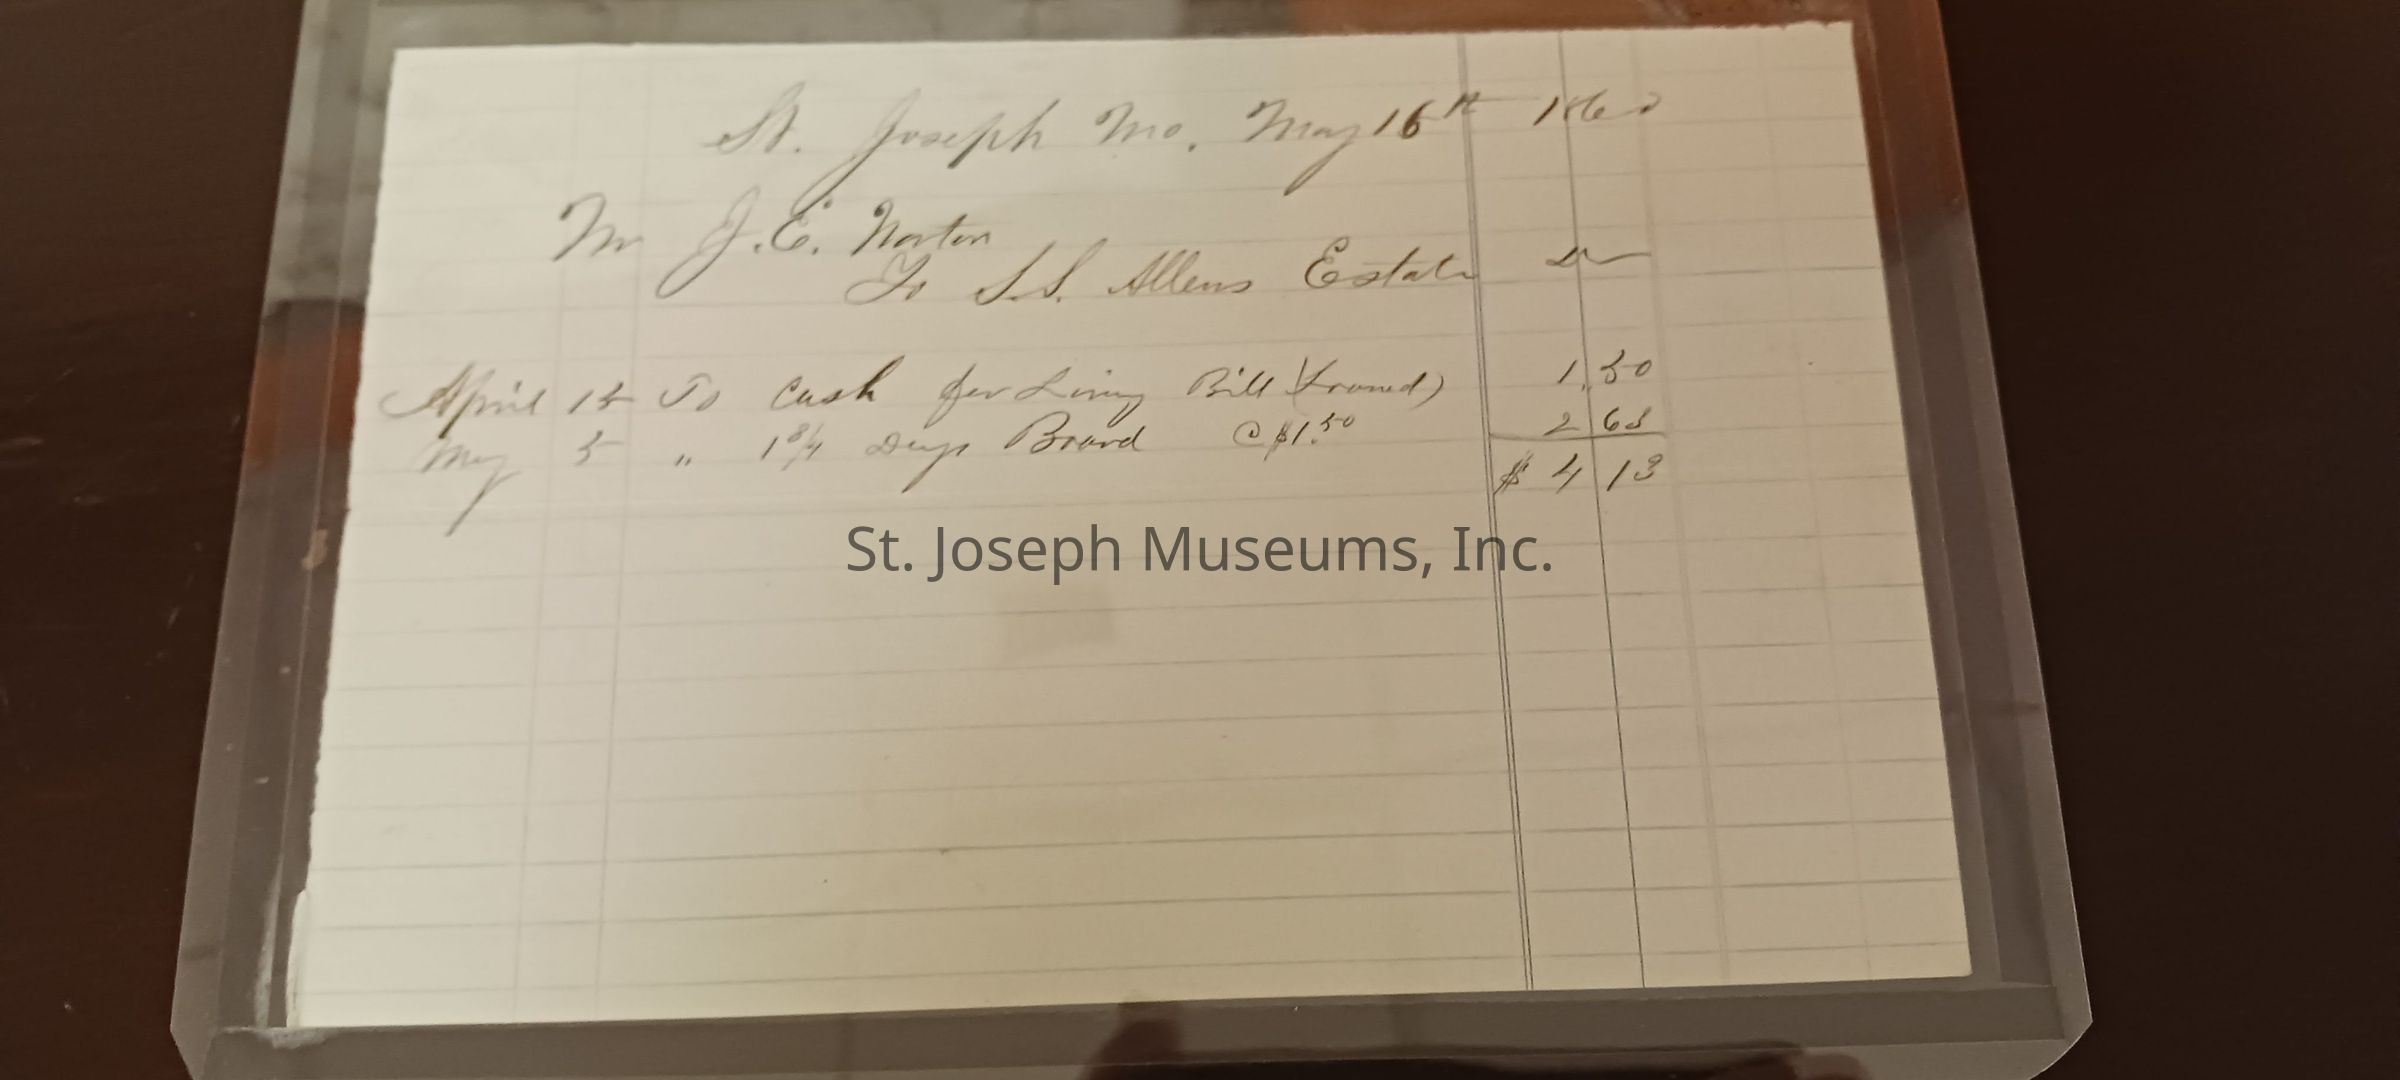 St. Joseph Mo. May 16th 1862
Mr J.E. Norton
To S.S. Allens Estate Dr
April 15 To Cash for Livery Bill (Loaned) 1.50
May 5 " 1 3/4 Days Board @ $1.50 2 63
$ 4 13
St. Joseph Museums, Inc.